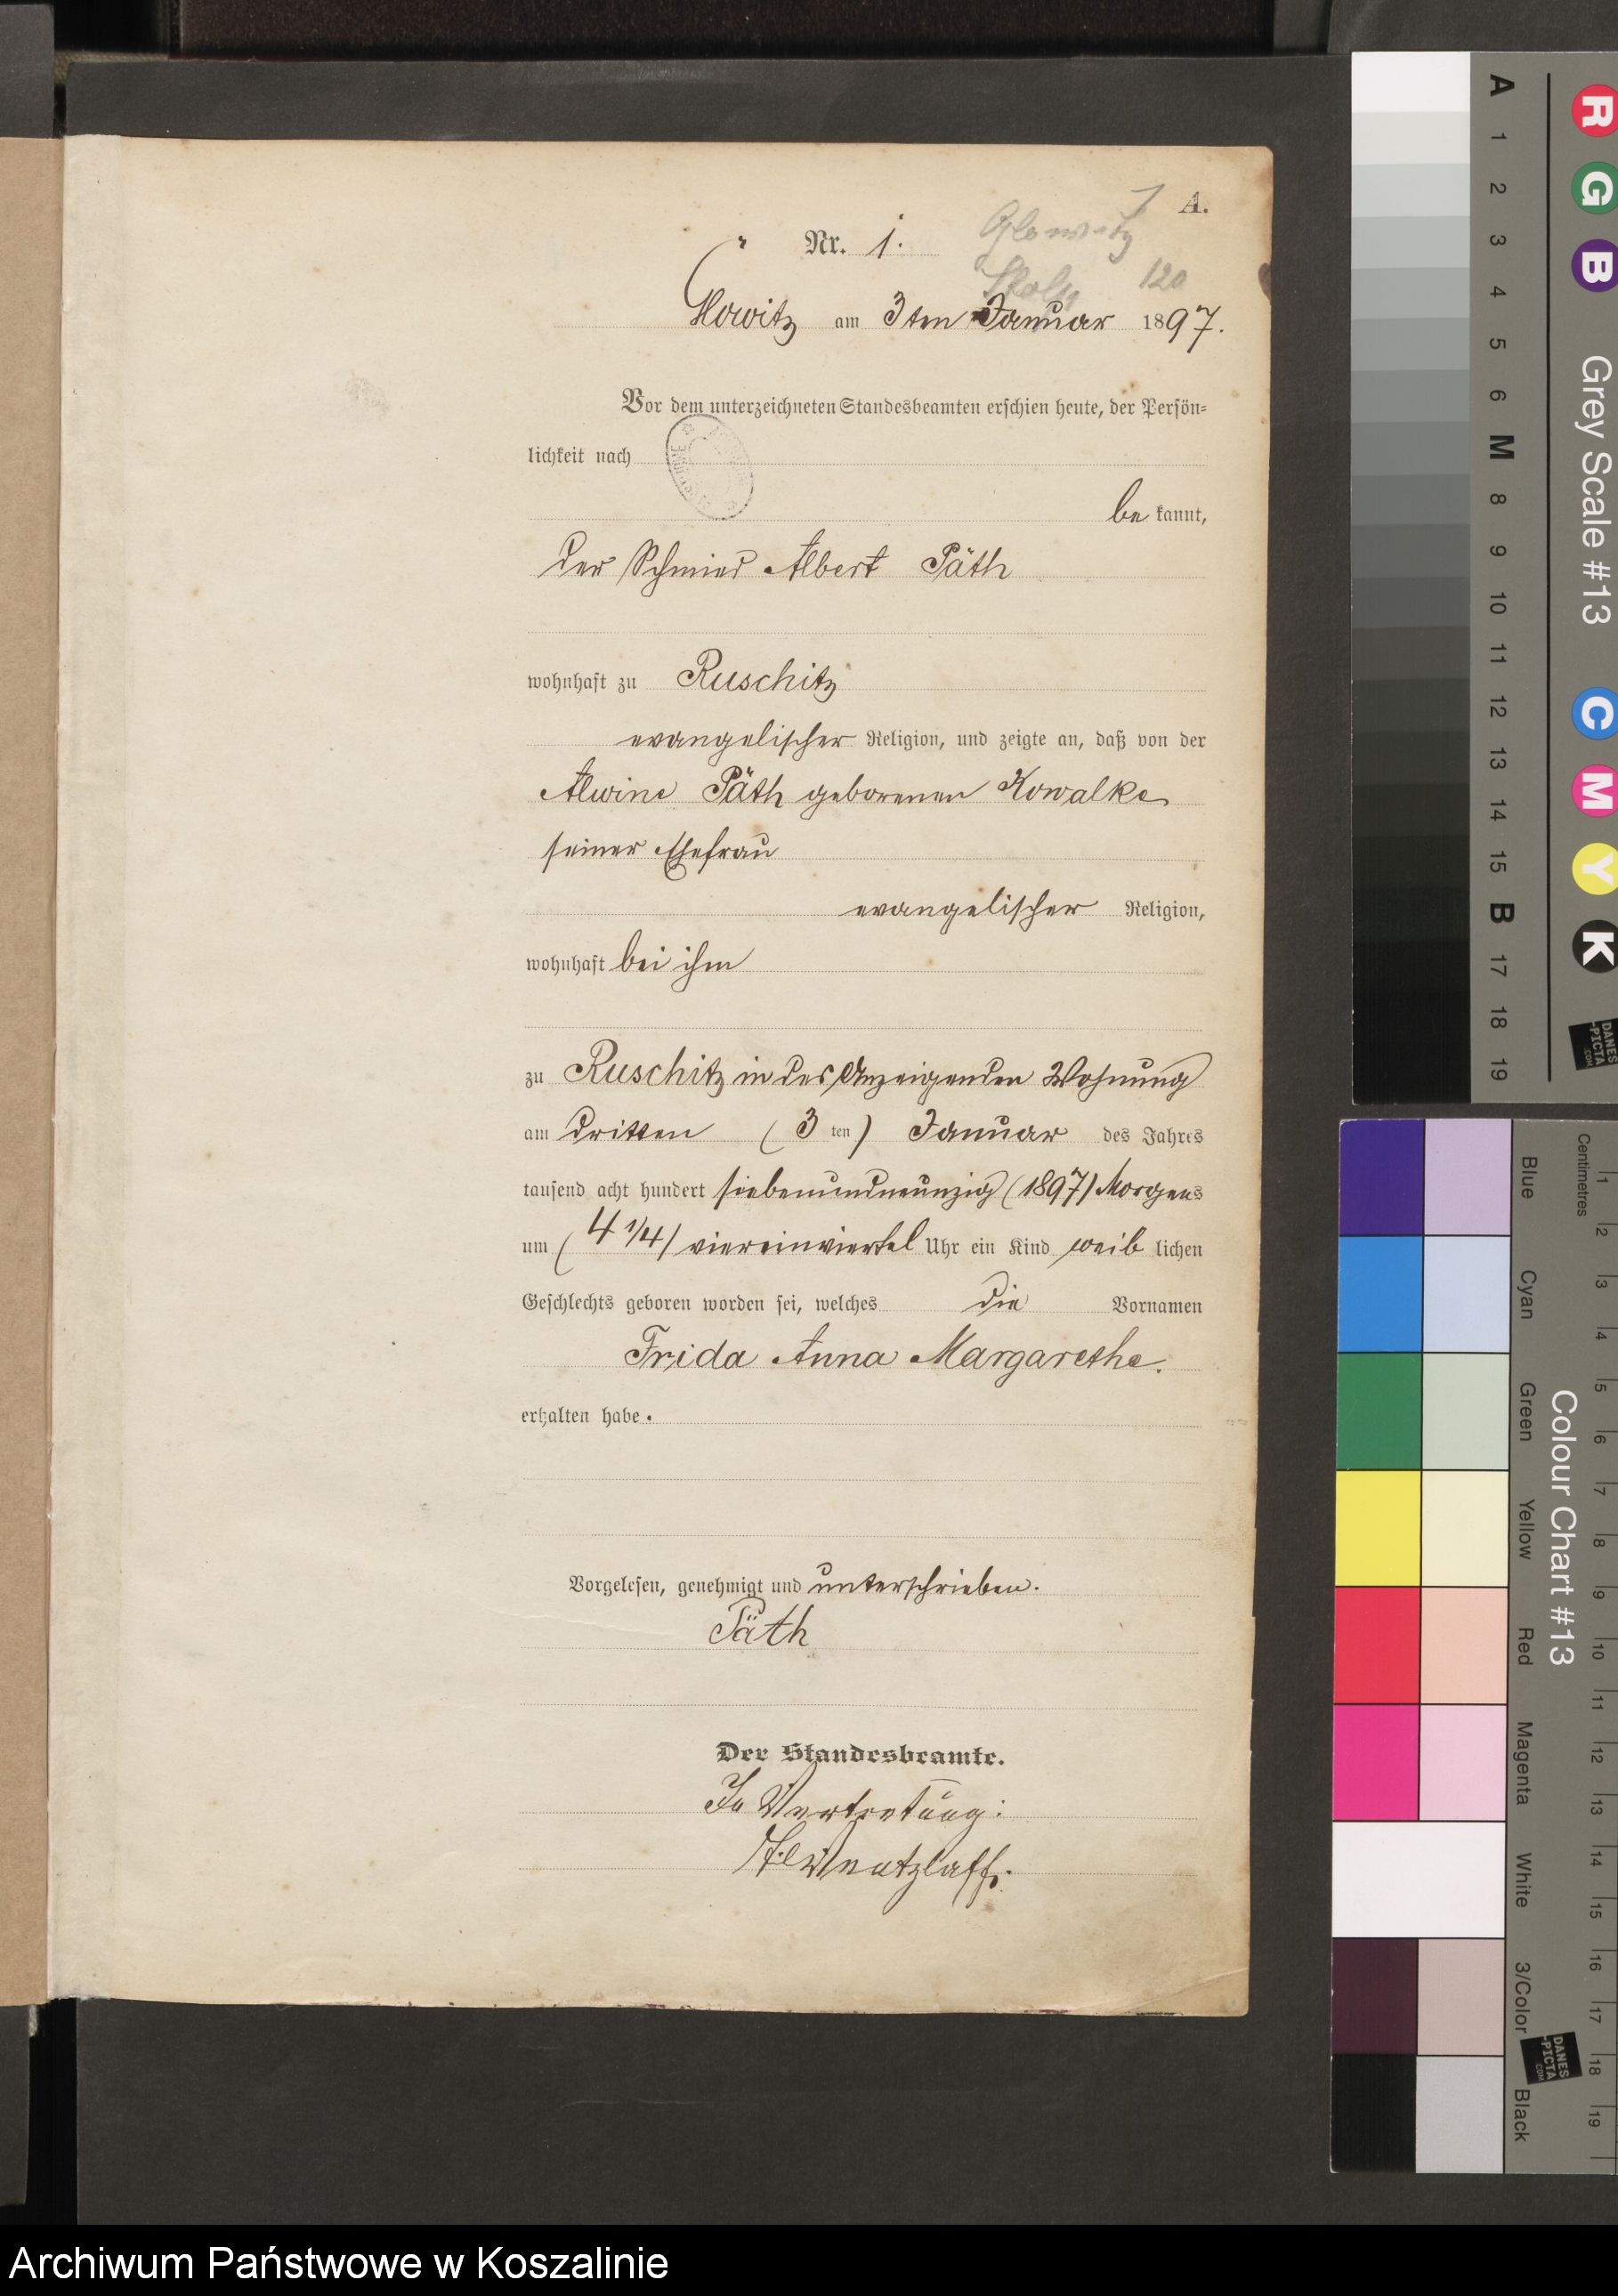 A.
Glowitz
Nr. 1.
Stolp 120
Glowitz am 3ten Januar 1897.
Vor dem unterzeichneten Standesbeamten erschien heute, der Persön=
lichkeit nach
be kannt,
der Schmied Albert Päth
wohnhaft zu Ruschitz
evangelischer Religion, und zeigte an, daß von der
Alwine Päth geborenen Kowalke
seiner Ehefrau
evangelischer Religion,
wohnhaft bei ihm
zu Ruschitz in des Anzeigenden Wohnung
am dritten (3 ten) Januar des Jahres
tausend acht hundert siebenundneunzig (1897) Morgens
um (4 1/4) viereinviertel Uhr ein Kind weib lichen
Geschlechts geboren worden sei, welches die Vornamen
Frida Anna Margarethe.
erhalten habe.
Vorgelesen, genehmigt und unterschrieben.
Päth
Der Standesbeamte.
In Vertretung:
Wentzlaff.
A 1 2 3 4 5 6 M 8 9 10 11 12 13 14 15 B 17 18 19
Grey Scale #13
R G B C M Y K
DANES
-PICTA
.COM
Blue Cyan Green Yellow Red Magenta White 3/Color Black
Colour Chart #13
Centimetres 1 2 3 4 5 6 7 8 9 10 11 12 13 14 15 16 17 18 19
DANES
-PICTA
.COM
Archiwum Państwowe w Koszalinie